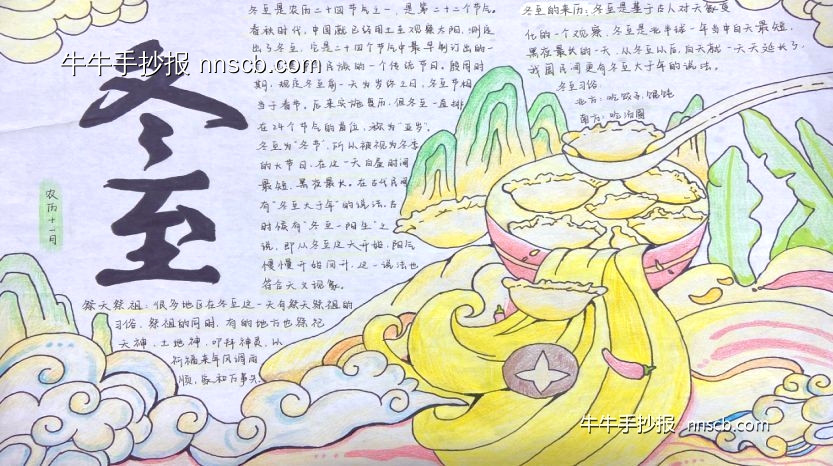 冬至
农历十一月
冬至是农历二十四节气之一，是第二十二个节气。
春秋时代，中国就已经用土圭观察太阳，测定
出了冬至，它是二十四个节气中最早制订出的一
民族的一个传统节日。殷周时
期，规定冬至前一天为岁终之日，冬至节相
当于春节。后来实施夏历，但冬至一直排
在24个节气的首位，称为"亚岁"。
冬至为"冬节"，所以被视为冬季
的大节日，在这一天白昼时间
最短，黑夜最长。在古代民间
有"冬至大于年"的说法。古
时候有"冬至一阳生"之
说，即从冬至这天开始，阳气
慢慢开始回升，这一说法也
符合天文现象。
祭天祭祖：很多地区在冬至这一天有祭天祭祖的
习俗，祭祖的同时，有的地方也祭祀
天神、土地神，叩拜神灵，以
祈福来年风调雨
顺，家和万事兴。
冬至的来历：冬至是基于古人对天象变
化的一个观察，冬至是北半球一年当中白天最短、
黑夜最长的一天，从冬至以后，白天就一天天延长了，
我国民间更有冬至大于年的说法。
冬至习俗
北方：吃饺子、馄饨
南方：吃汤圆
牛牛手抄报 nnscb.com
牛牛手抄报 nnscb.com